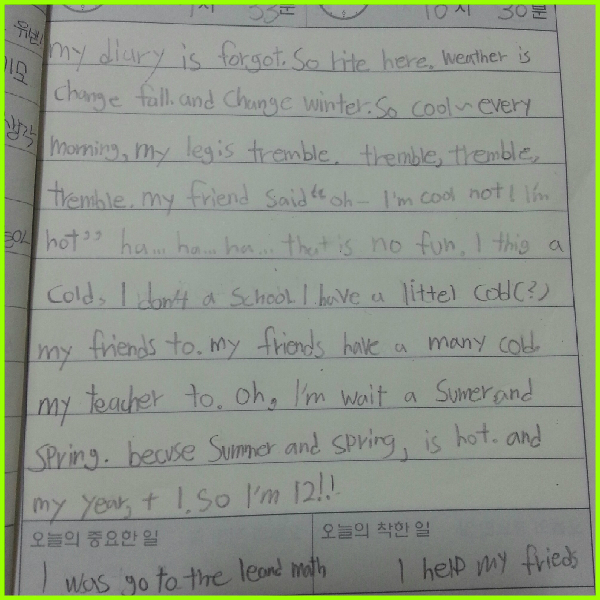 1시 53분 10시 30분
my diary is forgot. So rite here. Weather is
change fall. and change winter. So cool~ every
morning, my leg is tremble. tremble, tremble,
tremble. my friend said “oh- I'm cool not! I'm
hot” ha... ha... ha... that is no fun. I thig a
cold, I don't a school I have a littel cold(?)
my friends to. my friends have a many cold.
my teacher to. Oh, I'm wait a Sumer and
Spring. becuse Summer and spring, is hot. and
my year, + 1. So I'm 12!!
오늘의 중요한 일 오늘의 착한 일
I was go to the leand math I help my frieds